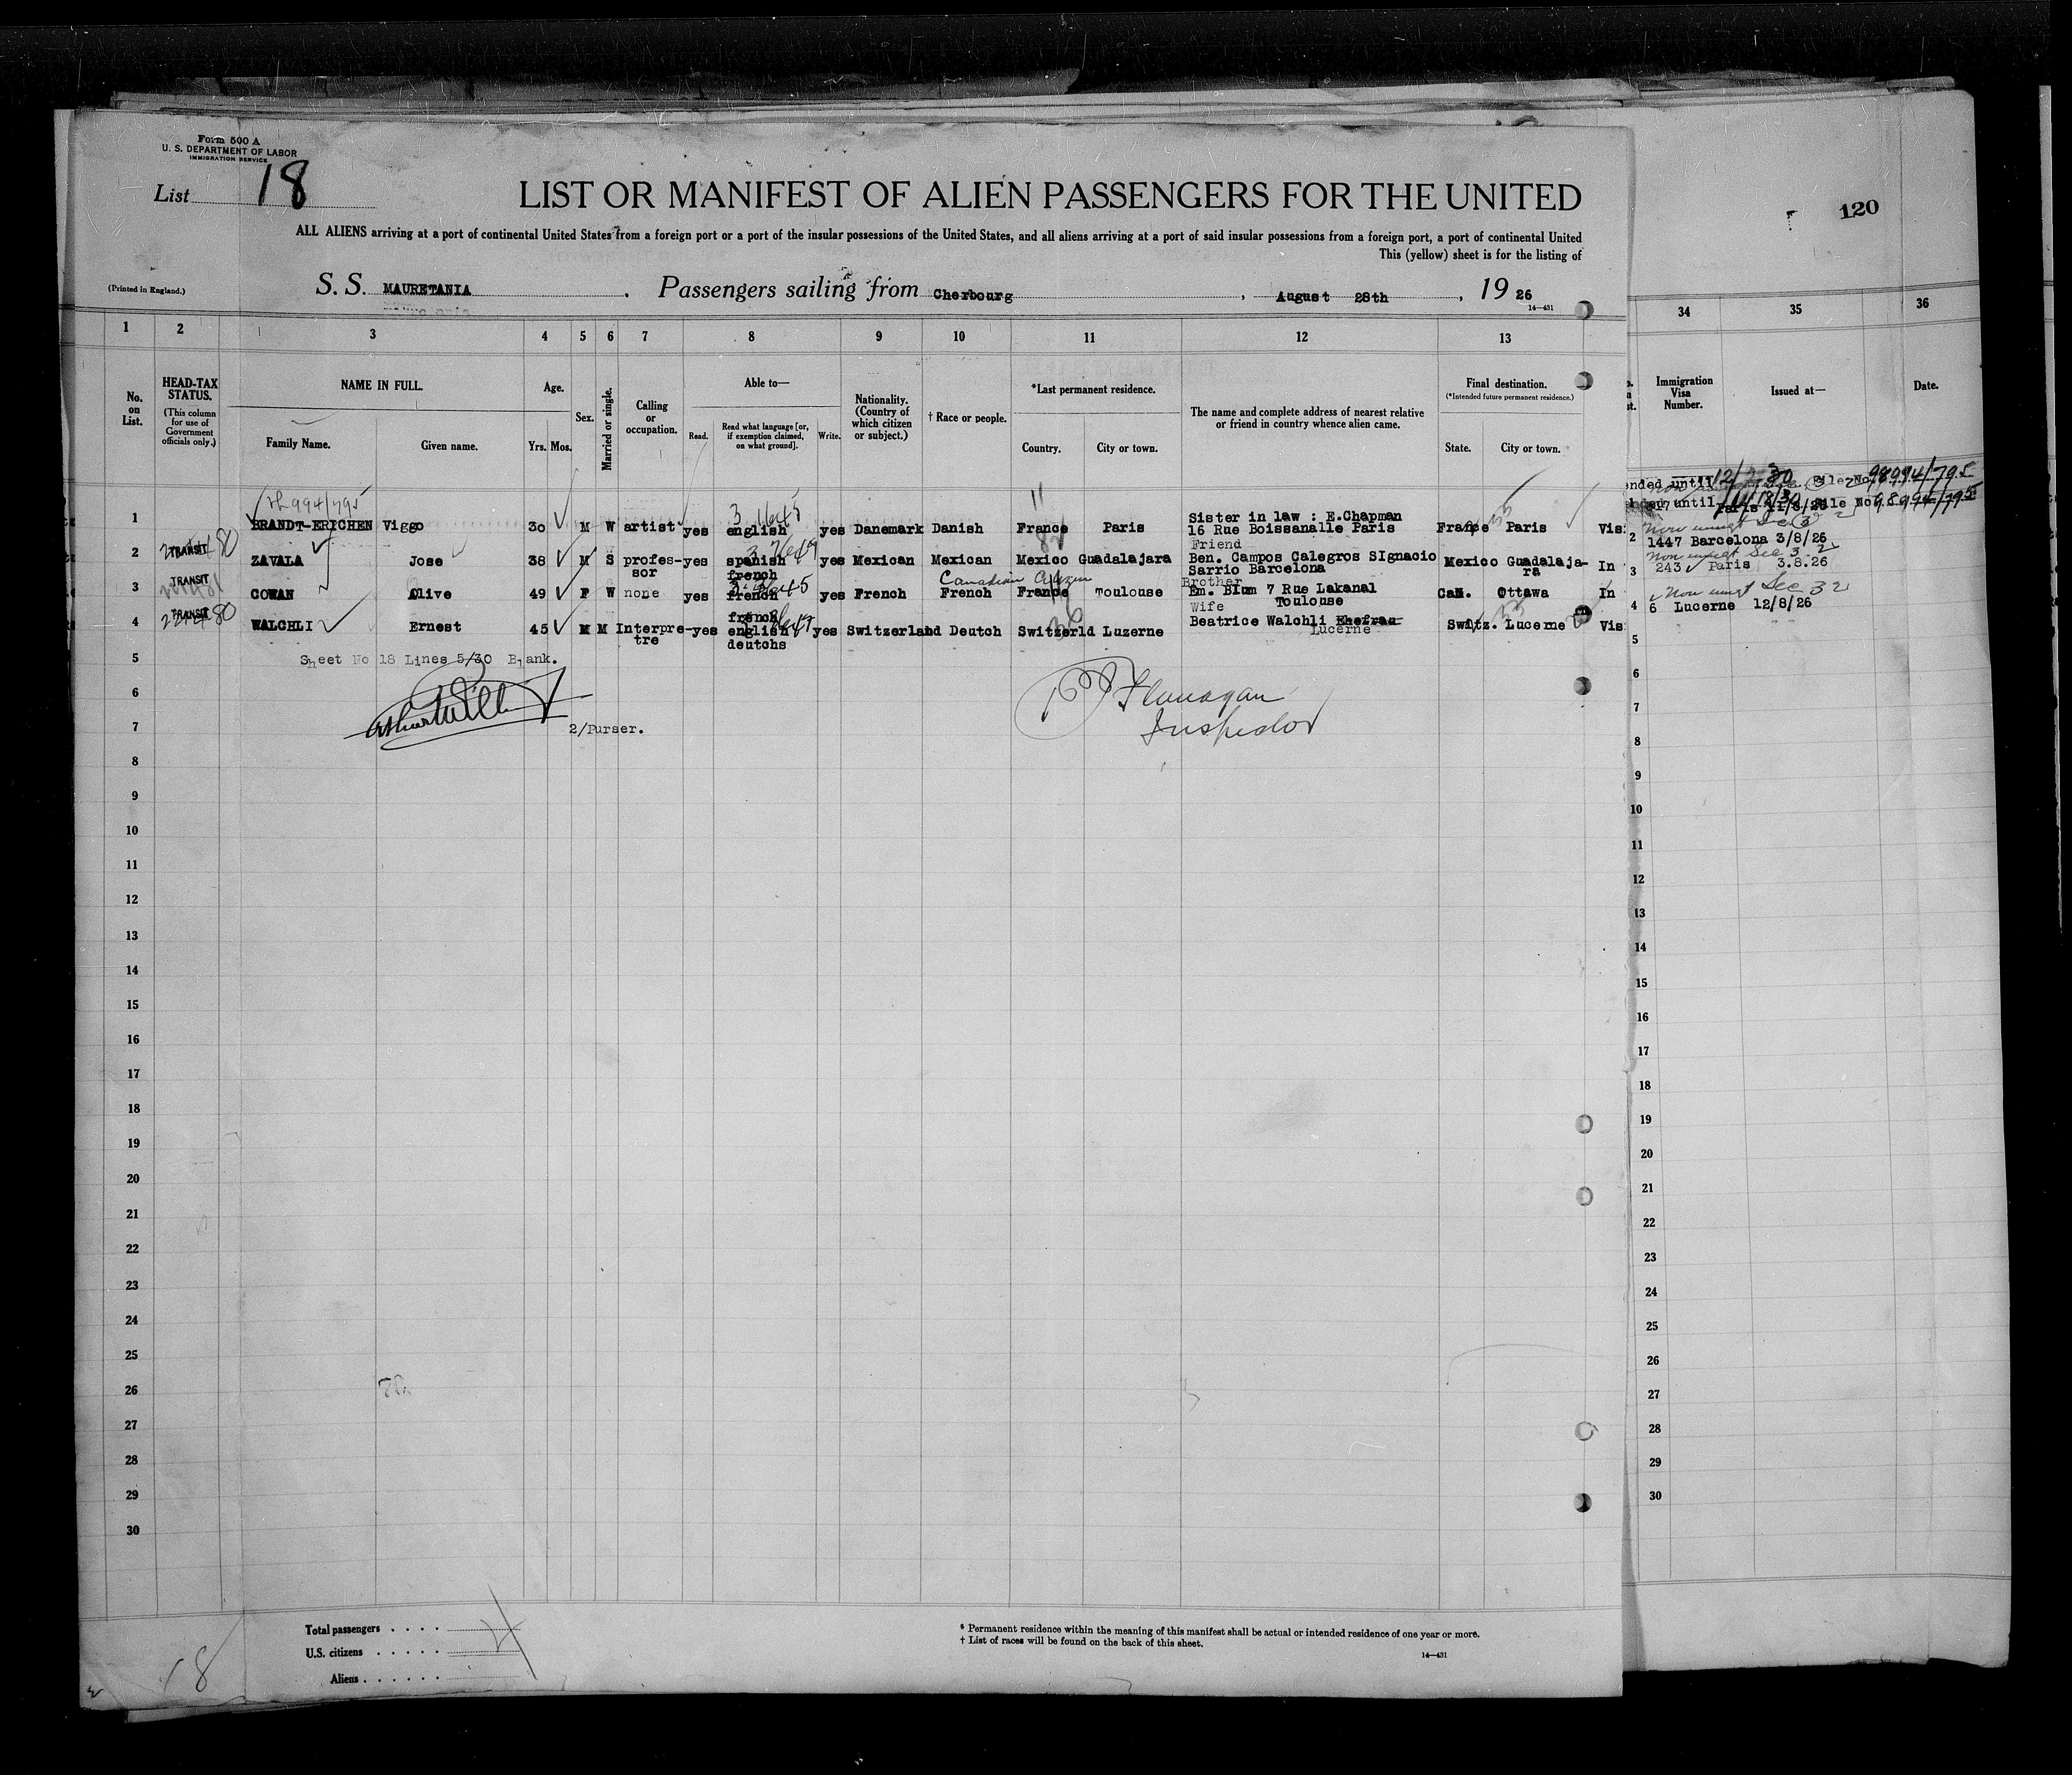 Form 500 A
U. S. DEPARTMENT OF LABOR
IMMIGRATION SERVICE
List 18
LIST OR MANIFEST OF ALIEN PASSENGERS FOR THE UNITED
120
ALL ALIENS arriving at a port of continental United States from a foreign port or a port of the insular possessions of the United States, and all aliens arriving at a port of said insular possessions from a foreign port, a port of continental United
This (yellow) sheet is for the listing of
(Printed in England.)
S. S. MAURETANIA, Passengers sailing from Cherbourg, August 28th, 19 26
14—431
1 2 3 4 5 6 7 8 9 10 11 12 13 34 35 36
No. on List.
HEAD-TAX STATUS.
(This column for use of Government officials only.)
NAME IN FULL.
Family Name. Given name.
Age.
Yrs. Mos.
Sex.
Married or single.
Calling or occupation.
Able to—
Read. Read what language [or, if exemption claimed, on what ground]. Write.
Nationality. (Country of which citizen or subject.)
† Race or people.
*Last permanent residence.
Country. City or town.
The name and complete address of nearest relative or friend in country whence alien came.
Final destination.
(*Intended future permanent residence.)
State. City or town.
Immigration Visa Number.
Issued at—
Date.
ended until 12/ 30 File No 98994/795
until 30 File No 98994/795
994/795
1 BRANDT-ERICHEN Viggo 30 M W artist yes english yes Danemark Danish France Paris Sister in law : E.Chapman 16 Rue Boissanalle Paris France Paris Vis
Paris 11/8/26
2 TRANSIT ZAVALA Jose 38 M S profes-sor yes spanish french yes Mexican Mexican Mexico Guadalajara Friend Ben. Campos Calegros SIgnacio Sarrio Barcelona Mexico Guadalaja-ra In
2 1447 Barcelona 3/8/26
3 TRANSIT COWAN Olive 49 F W none yes french yes French French Canadian Citizen France Toulouse Brother Em. Blum 7 Rue Lakanal Toulouse Can. Ottawa In
3 243 Paris 3.8.26
4 TRANSIT WALCHLI Ernest 45 M M Interpre-tre yes french english deutchs yes Switzerland Deutch Switzerld Luzerne Wife Beatrice Walchli Ehefrau Lucerne Switz. Lucerne Vis
4 6 Lucerne 12/8/26
5 Sheet No 18 Lines 5/30 Blank. 5
6 6
7 2/Purser. Flanagan Inspector 7
8 8
9 9
10 10
11 11
12 12
13 13
14 14
15 15
16 16
17 17
18 18
19 19
20 20
21 21
22 22
23 23
24 24
25 25
26 26
27 27
28 28
29 29
30 30
Total passengers
U.S. citizens
Aliens
* Permanent residence within the meaning of this manifest shall be actual or intended residence of one year or more.
† List of races will be found on the back of this sheet.
14—431
18